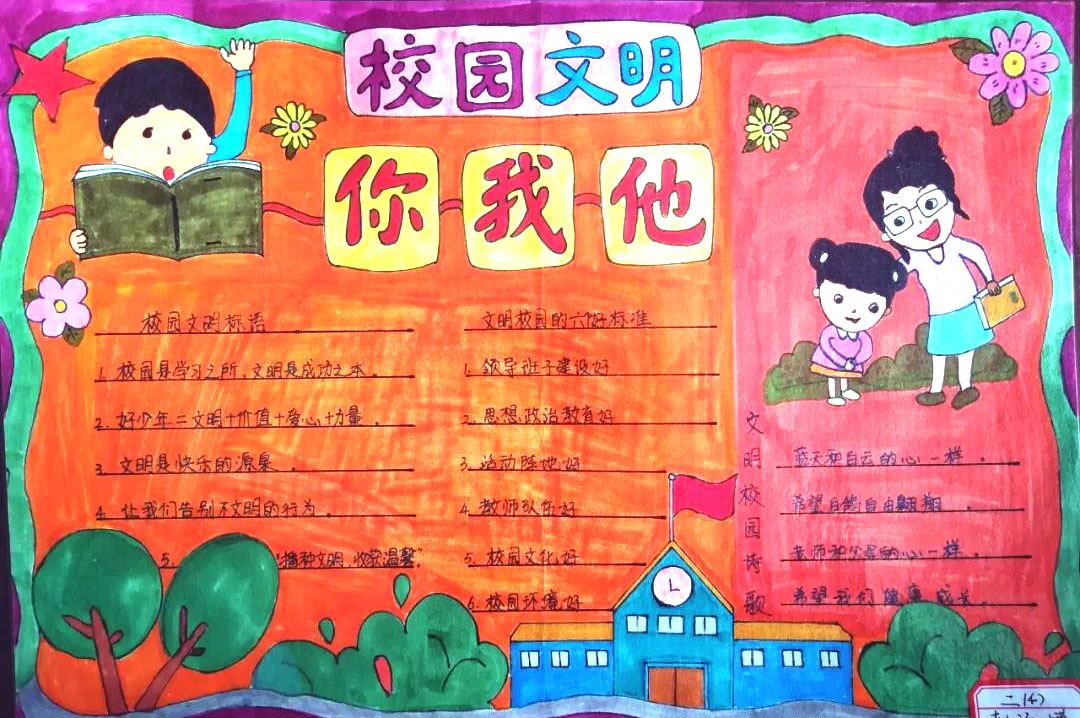 校园文明
你我他
校园文明标语
1. 校园是学习之所,文明是成功之本。
2. 好少年=文明+价值+爱心+力量。
3. 文明是快乐的源泉。
4. 让我们告别不文明的行为。
5. "播种文明,收获温馨"
文明校园的六个好标准
1. 领导班子建设好
2. 思想政治教育好
3. 活动阵地好
4. 教师队伍好
5. 校园文化好
6. 校园环境好
文明校园诗歌
蓝天和白云的心一样。
希望自然自由翱翔。
老师和父母的心一样。
希望我们健康成长。
二(4)